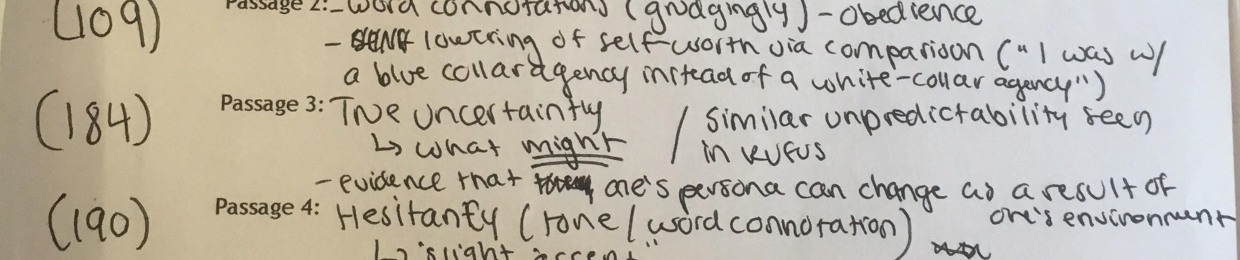 (109) Passage 2: - word connotations (grudgingly) - obedience
- lowering of self-worth via comparison ("I was w/
a blue collar agency instead of a white-collar agency")
(184) Passage 3: True uncertainty / similar unpredictability seen
↳ what might / in Rufus
- evidence that one's persona can change as a result of
one's environment
(190) Passage 4: Hesitantly (tone/word connotation)
↳ "slight accent"